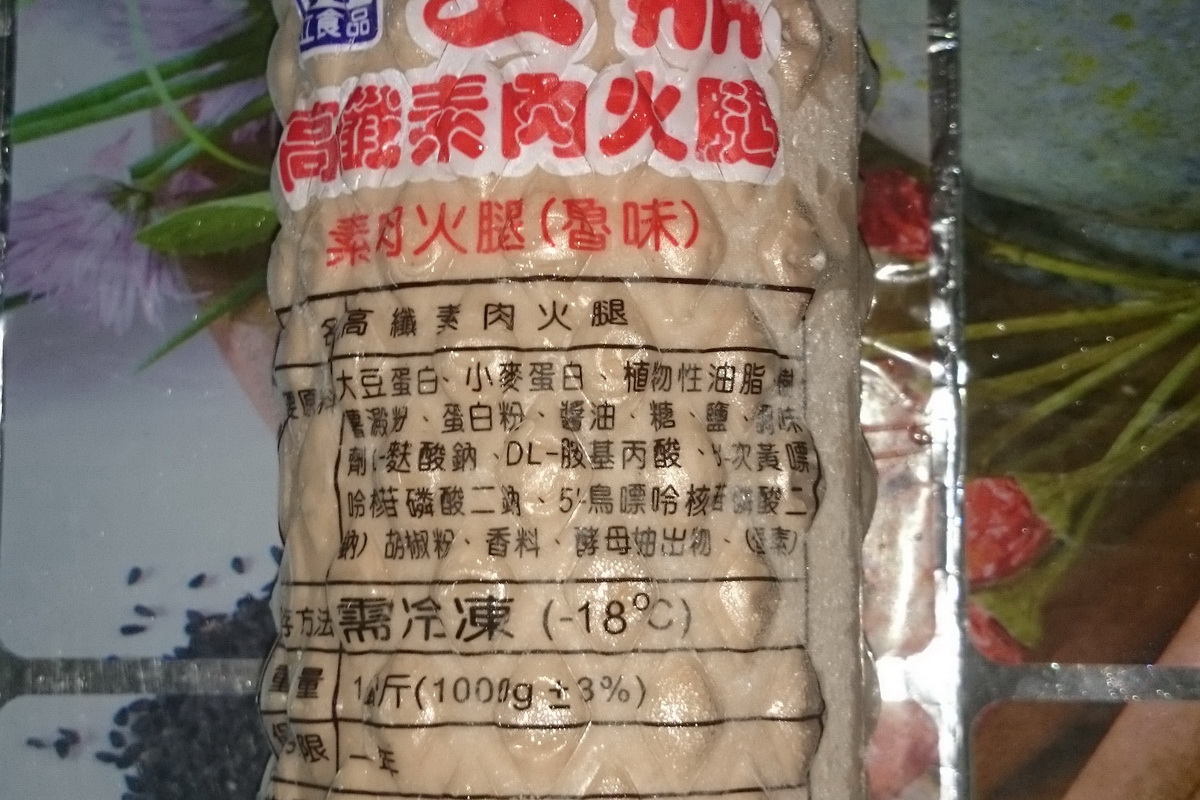 江食品
高纖素肉火腿
素肉火腿(魯味)
名 高纖素肉火腿
要原料 大豆蛋白、小麥蛋白、植物性油脂、樹
薯澱粉、蛋白粉、醬油、糖、鹽、調味
劑(-麩酸鈉、DL-胺基丙酸、5-次黃嘌
呤核苷磷酸二鈉、5'-鳥嘌呤核苷磷酸二
鈉)胡椒粉、香料、酵母抽出物、(蛋素)
存方法 需冷凍(-18℃)
重量 1公斤(1000g±3%)
限 一年